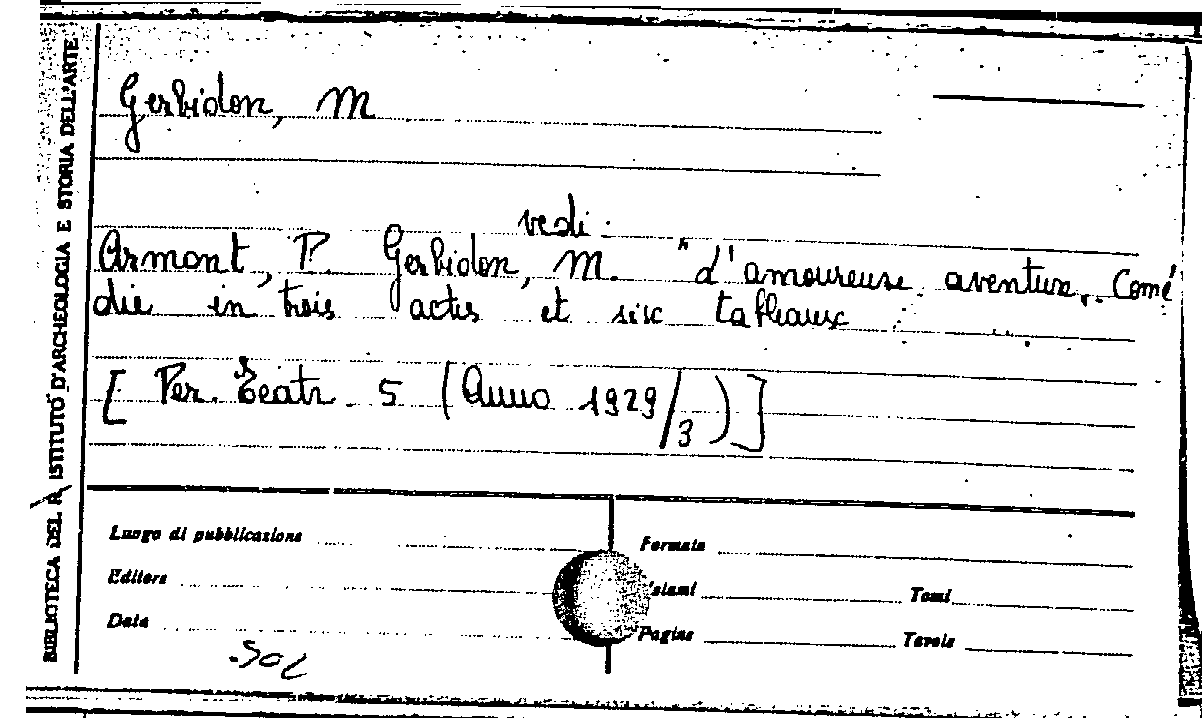 BIBLIOTECA DEL R. ISTITUTO D'ARCHEOLOGIA E STORIA DELL'ARTE
Gerbidon, M
vedi:
Armont, P. Gerbidon, M. "d'amoureuse aventure. Comé
die in trois actes et six tableaux
[ Per. Teatr. 5 (Anno 1929/3)]
Luogo di pubblicazione Formato
Editore Volumi Tomi
Data Pagine Tavole